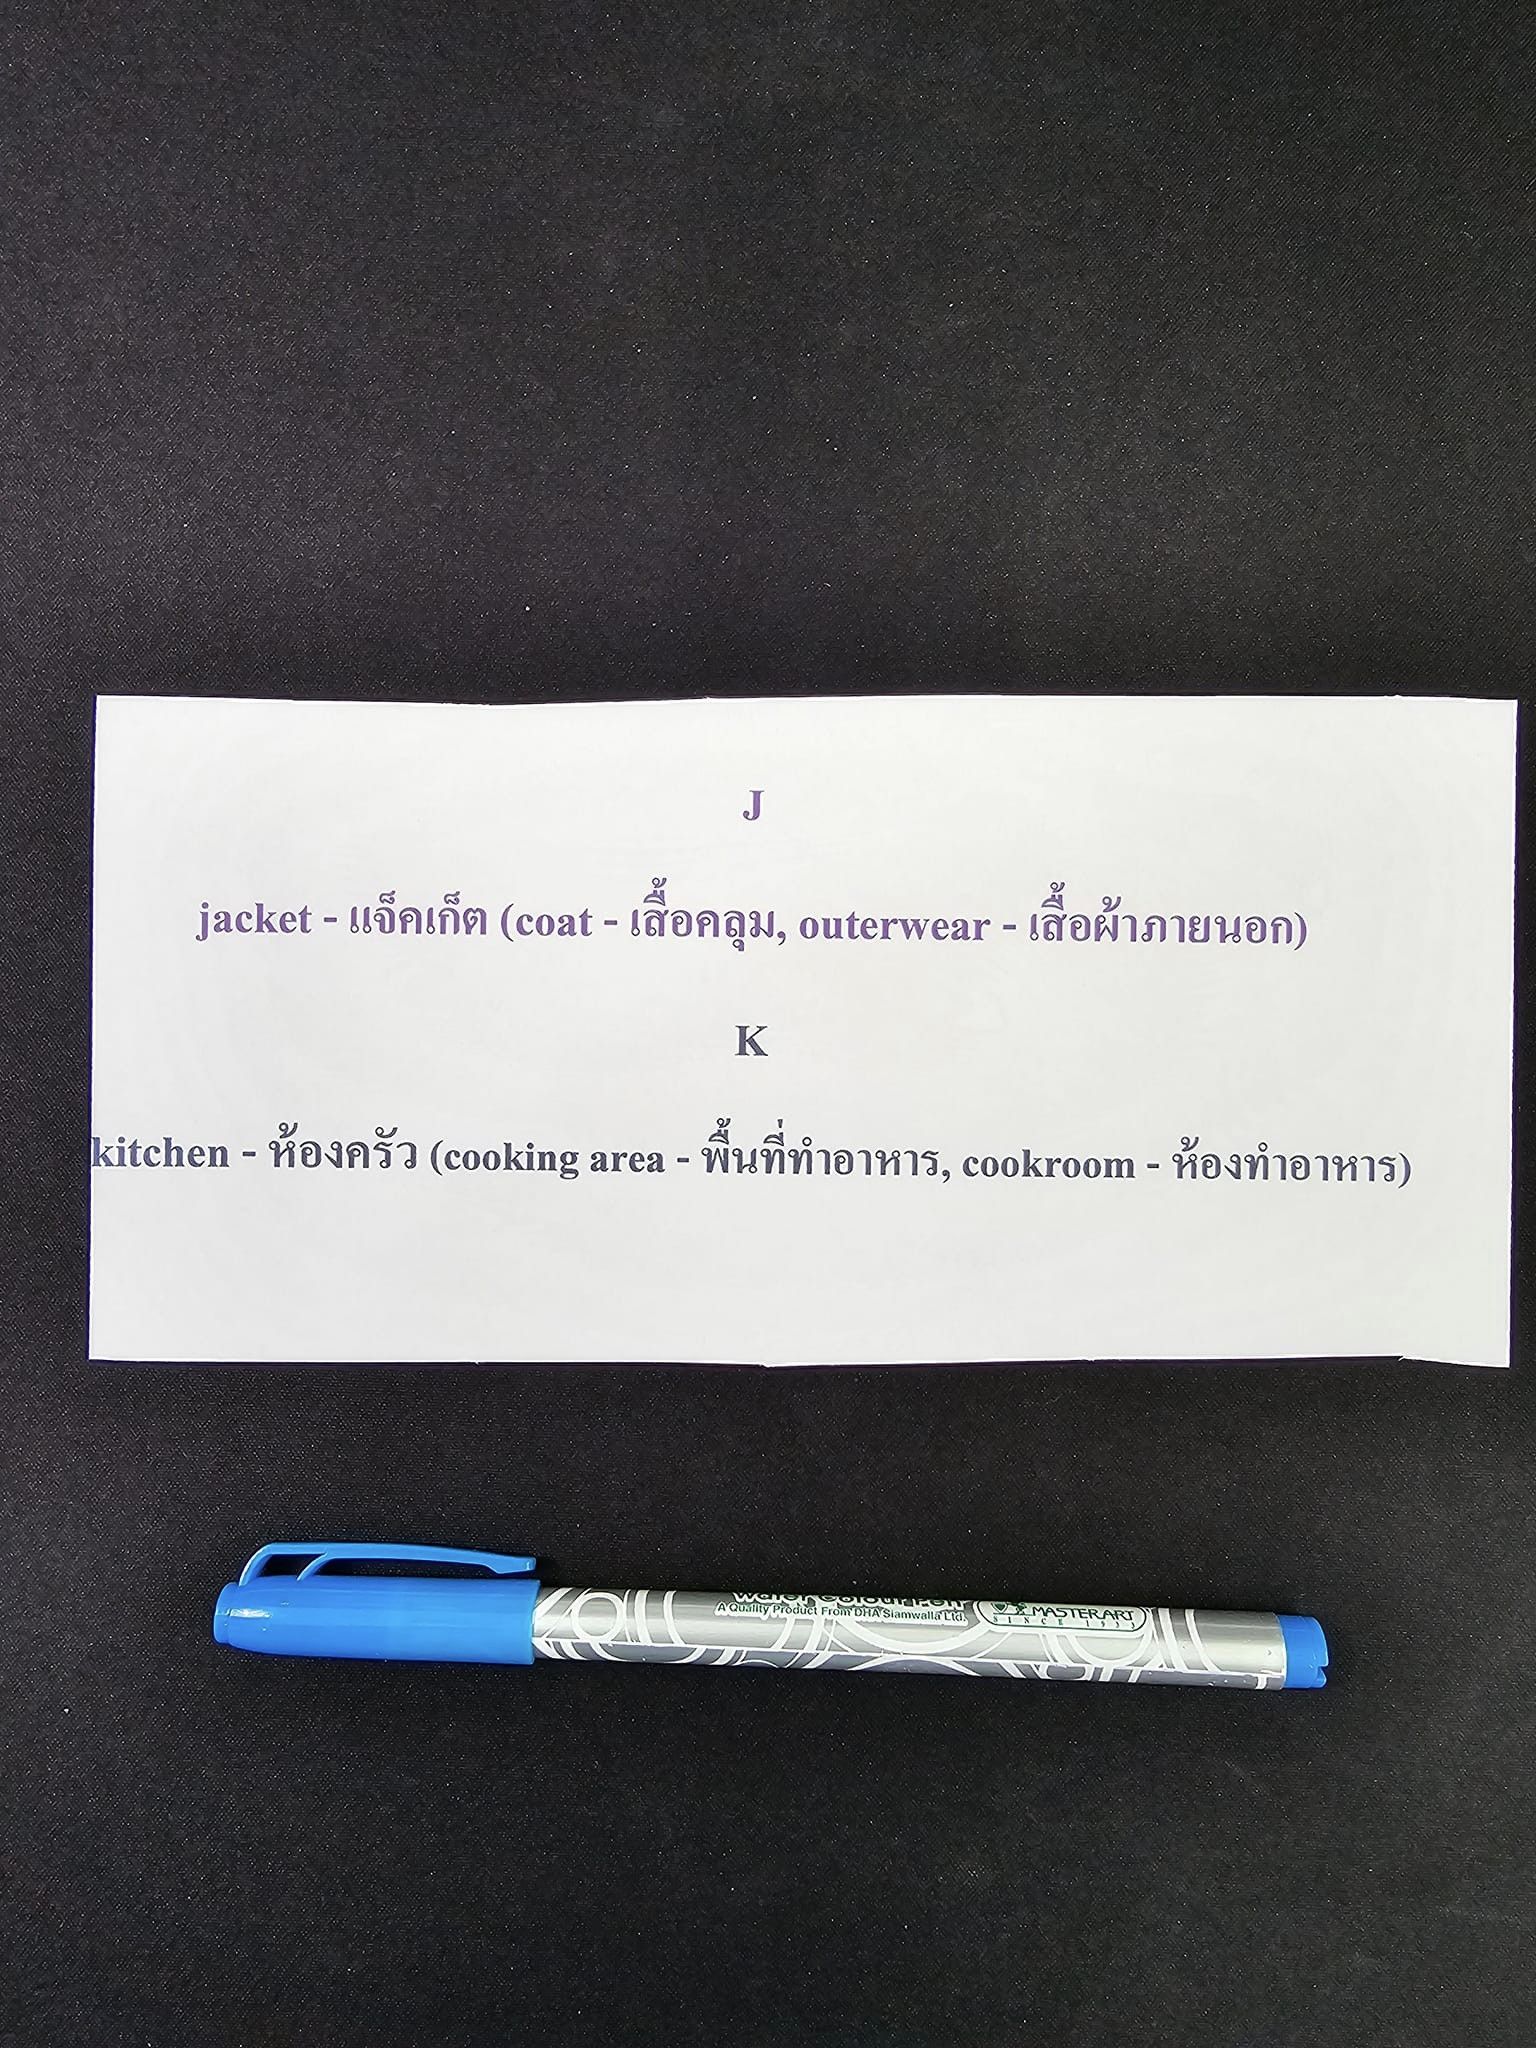 J
jacket - แจ็คเก็ต (coat - เสื้อคลุม, outerwear - เสื้อผ้าภายนอก)
K
kitchen - ห้องครัว (cooking area - พื้นที่ทำอาหาร, cookroom - ห้องทำอาหาร)
Water Colour Pen
A Quality Product From DHA Siamwalla Ltd.
MASTERART
SINCE 1933